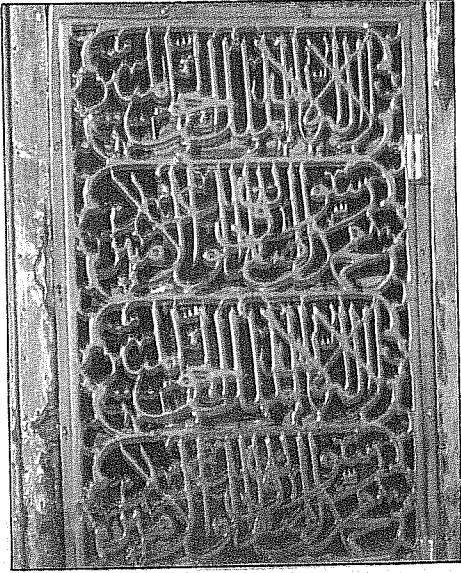 لا اله الا الله الملك الحق المبين
محمد رسول الله صادق الوعد الامين
لا اله الا الله الملك الحق المبين
محمد رسول الله صادق الوعد الامين